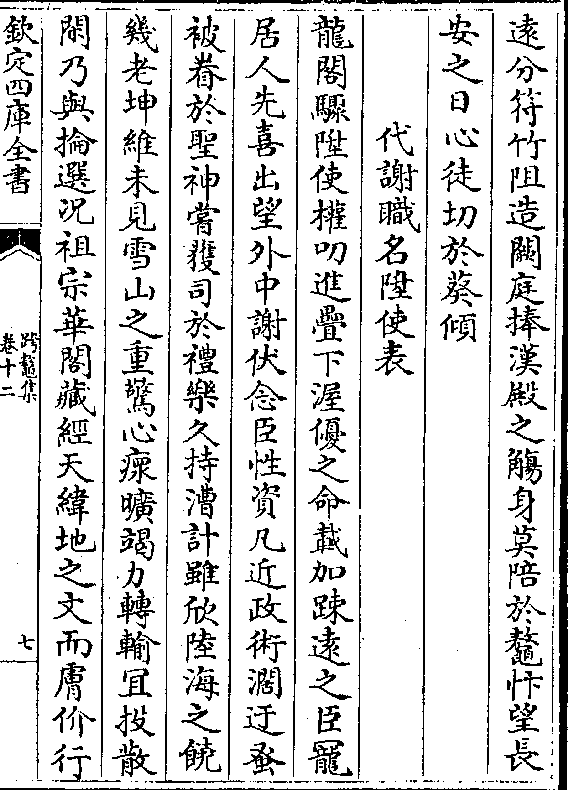 逺分符竹阻造闕庭捧漢殿之觴身莫陪於鼇忭望長
安之日心徒切於葵傾
代謝職名陞使表
龍閣驟陞使權叨進疊下渥優之命載加踈逺之臣寵
居人先喜出望外中謝伏念臣性資凡近政術濶迂蚤
被眷於聖神嘗獲司於禮樂久持漕計雖欣陸海之饒
幾老坤維未見雪山之重驚心瘝曠竭力轉輸宜投散
閒乃與掄選况祖宗華閣藏經天緯地之文而膚价行
欽定四庫全書
跨鼇集
卷十二
七